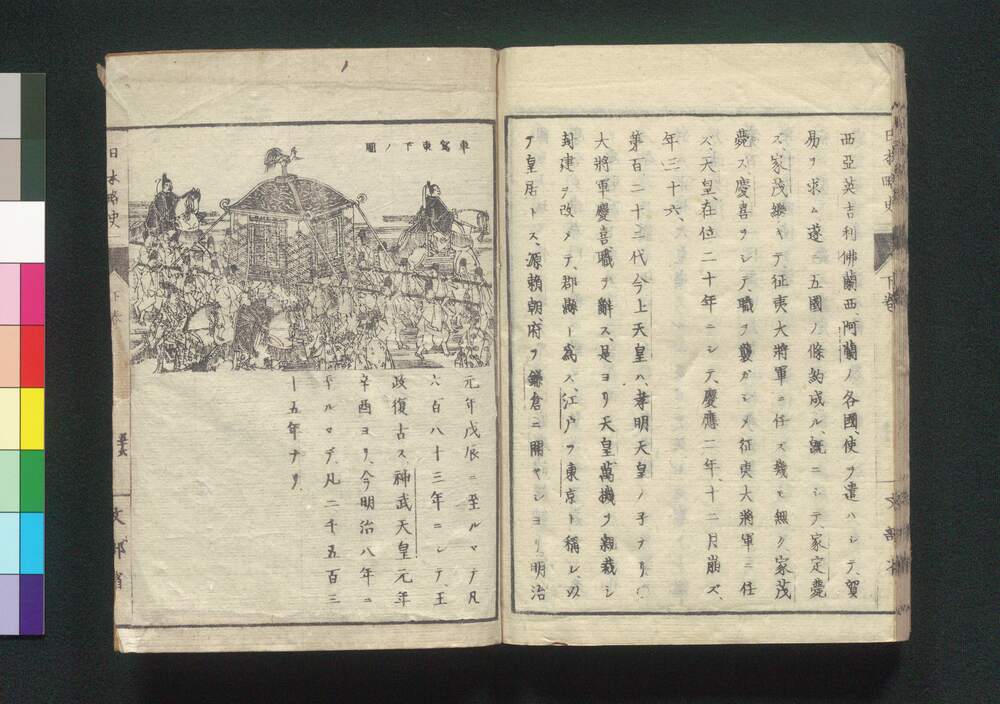 西亞英吉利佛蘭西、阿蘭ノ各國、使ヲ遣ハシテ、貿
易ヲ求ム遂ニ五國ノ條約成ル、既ニシテ、家定薨
ス、家茂繼ギテ征夷大將軍ニ任ズ幾モ無ク、家茂
薨ス、慶喜ヲシテ、職ヲ襲ガシメ征夷大將軍ニ任
ズ、天皇、在位二十年ニシテ、慶應二年、十二月崩ズ、
年三十六、
第百二十二代今上天皇ハ、孝明天皇ノ子ナリ、
大將軍慶喜職ヲ辭ス、是ヨリ天皇萬機ヲ親裁シ
封建ヲ改メテ、郡縣ト爲ス、江戸ヲ東京ト稱シ、以
テ皇居トス、源頼朝、府ヲ鎌倉ニ開キシヨリ、明治
日本略史
下巻
文部省
車駕東下ノ圖
元年戊辰ニ至ルマデ凡
六百八十三年ニシテ、王
政復古ス、神武天皇元年
辛酉ヨリ、今明治八年ニ
至ルマデ、凡二千五百三
十五年ナリ
日本略史
下巻
文部省